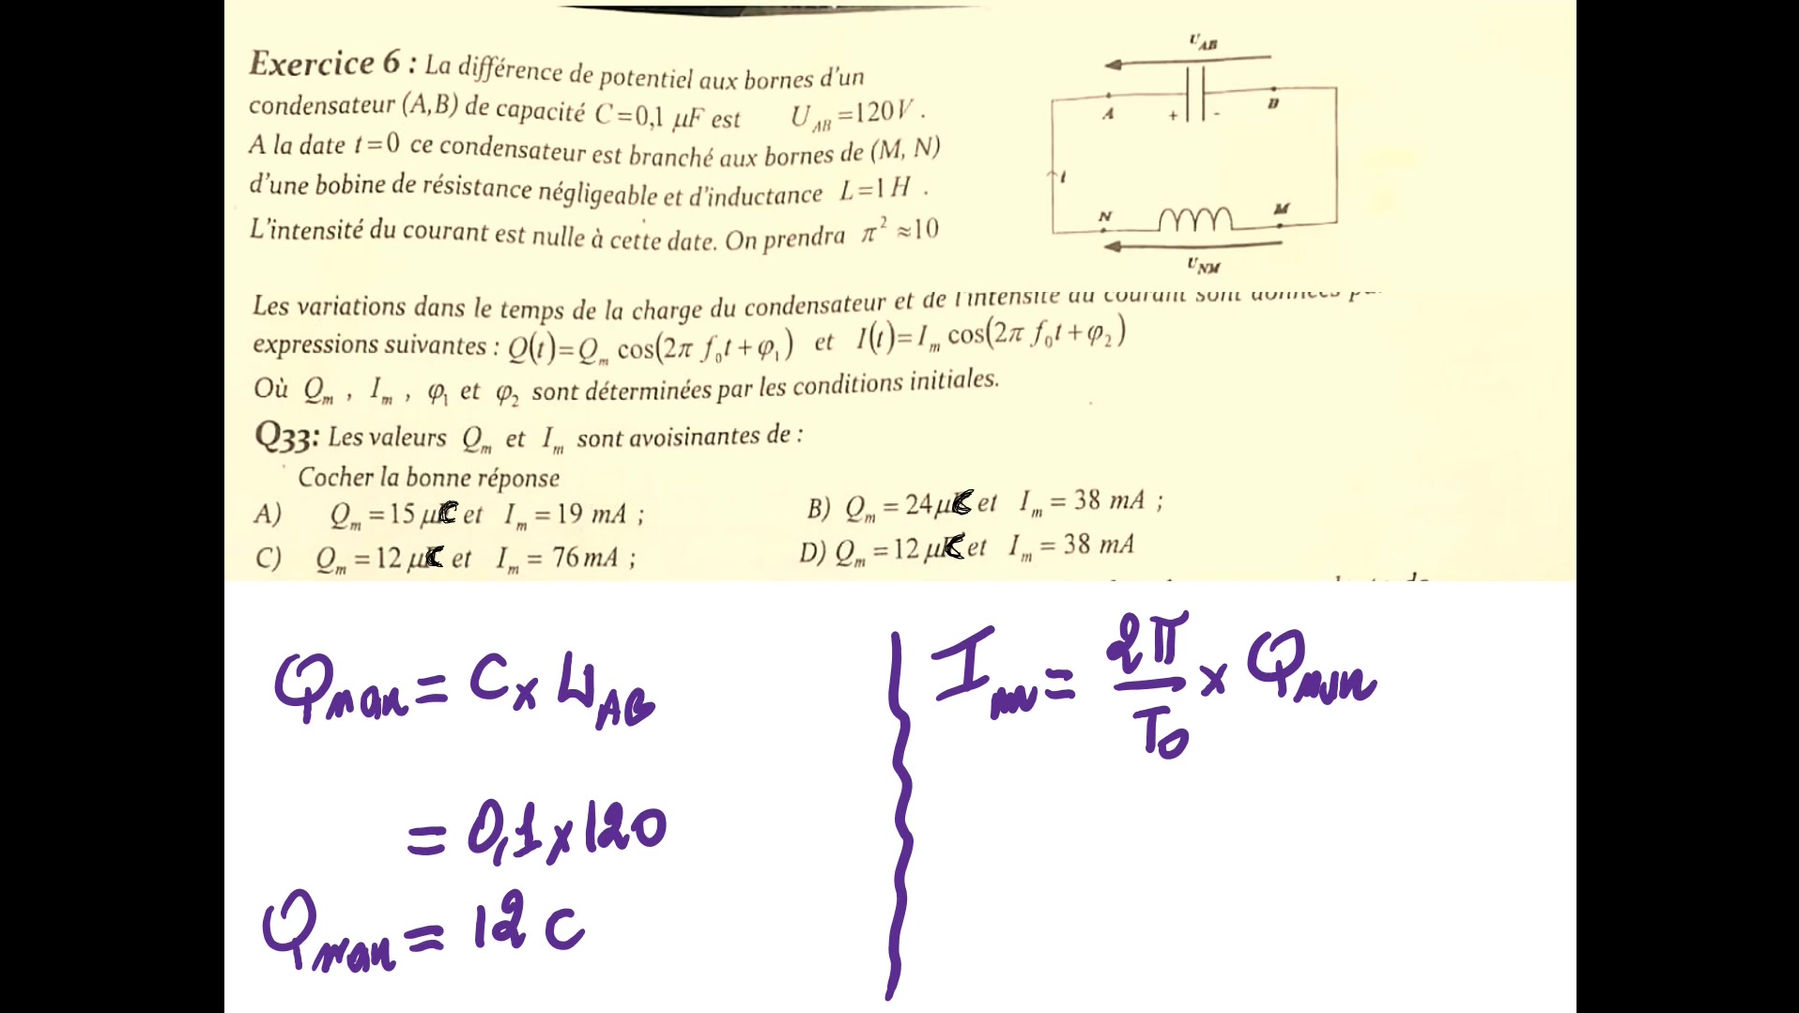 Exercice 6 : La différence de potentiel aux bornes d'un
condensateur (A,B) de capacité C=0,1 μF est U_AB=120V .
A la date t=0 ce condensateur est branché aux bornes de (M, N)
d'une bobine de résistance négligeable et d'inductance L=1H .
L'intensité du courant est nulle à cette date. On prendra π² ≈10
U_AB
A + - B
i
N M
U_NM
Les variations dans le temps de la charge du condensateur et de l'intensité du courant sont données
expressions suivantes : Q(t)=Q_m cos(2π f₀t+φ₁) et I(t)=I_m cos(2π f₀t+φ₂)
Où Q_m , I_m , φ₁ et φ₂ sont déterminées par les conditions initiales.
Q33: Les valeurs Q_m et I_m sont avoisinantes de :
Cocher la bonne réponse
A) Q_m = 15 μC et I_m = 19 mA ;
B) Q_m = 24 μC et I_m = 38 mA ;
C) Q_m = 12 μC et I_m = 76 mA ;
D) Q_m = 12 μC et I_m = 38 mA
Qmax = C x U_AB
= 0,1 x 120
Qmax = 12 C
I_m = 2π/T₀ x Qmax